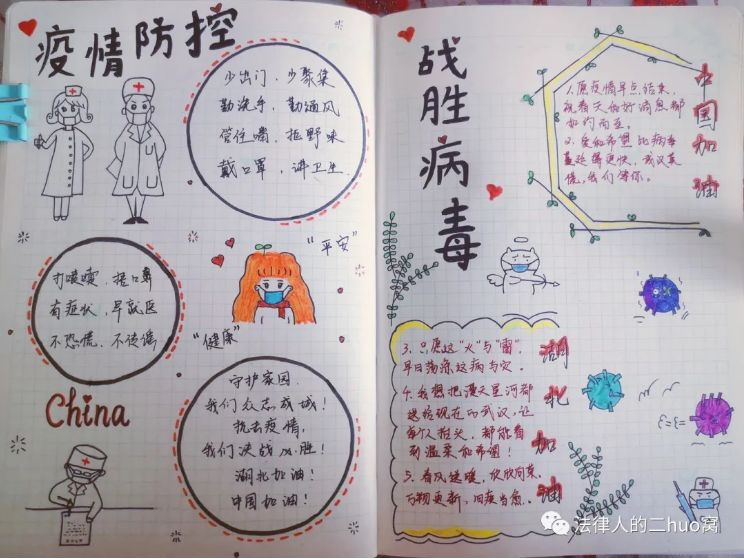 疫情防控
少出门，少聚集
勤洗手，勤通风
管住嘴，拒野味
戴口罩，讲卫生
"平安"
打喷嚏，捂口鼻
有症状，早就医
不恐慌，不传谣
"健康"
China
守护家园，
我们众志成城！
抗击疫情，
我们决战必胜！
湖北加油！
中国加油！
战胜病毒
1.愿疫情早点结束，
祝春天的好消息都
如约而至。
2.爱和希望比病毒
蔓延得更快，武汉莫
慌，我们等你。
中国加油
3.只愿这"火"与"雷"，
早日荡涤这病与灾。
4.我想把漫天星河都
送给现在的武汉，让
每个人抬头，都能看
到温柔和希望！
5.春风送暖，欣欣向荣，
万物更新，旧疾当愈。
湖北加油
法律人的二huo窝